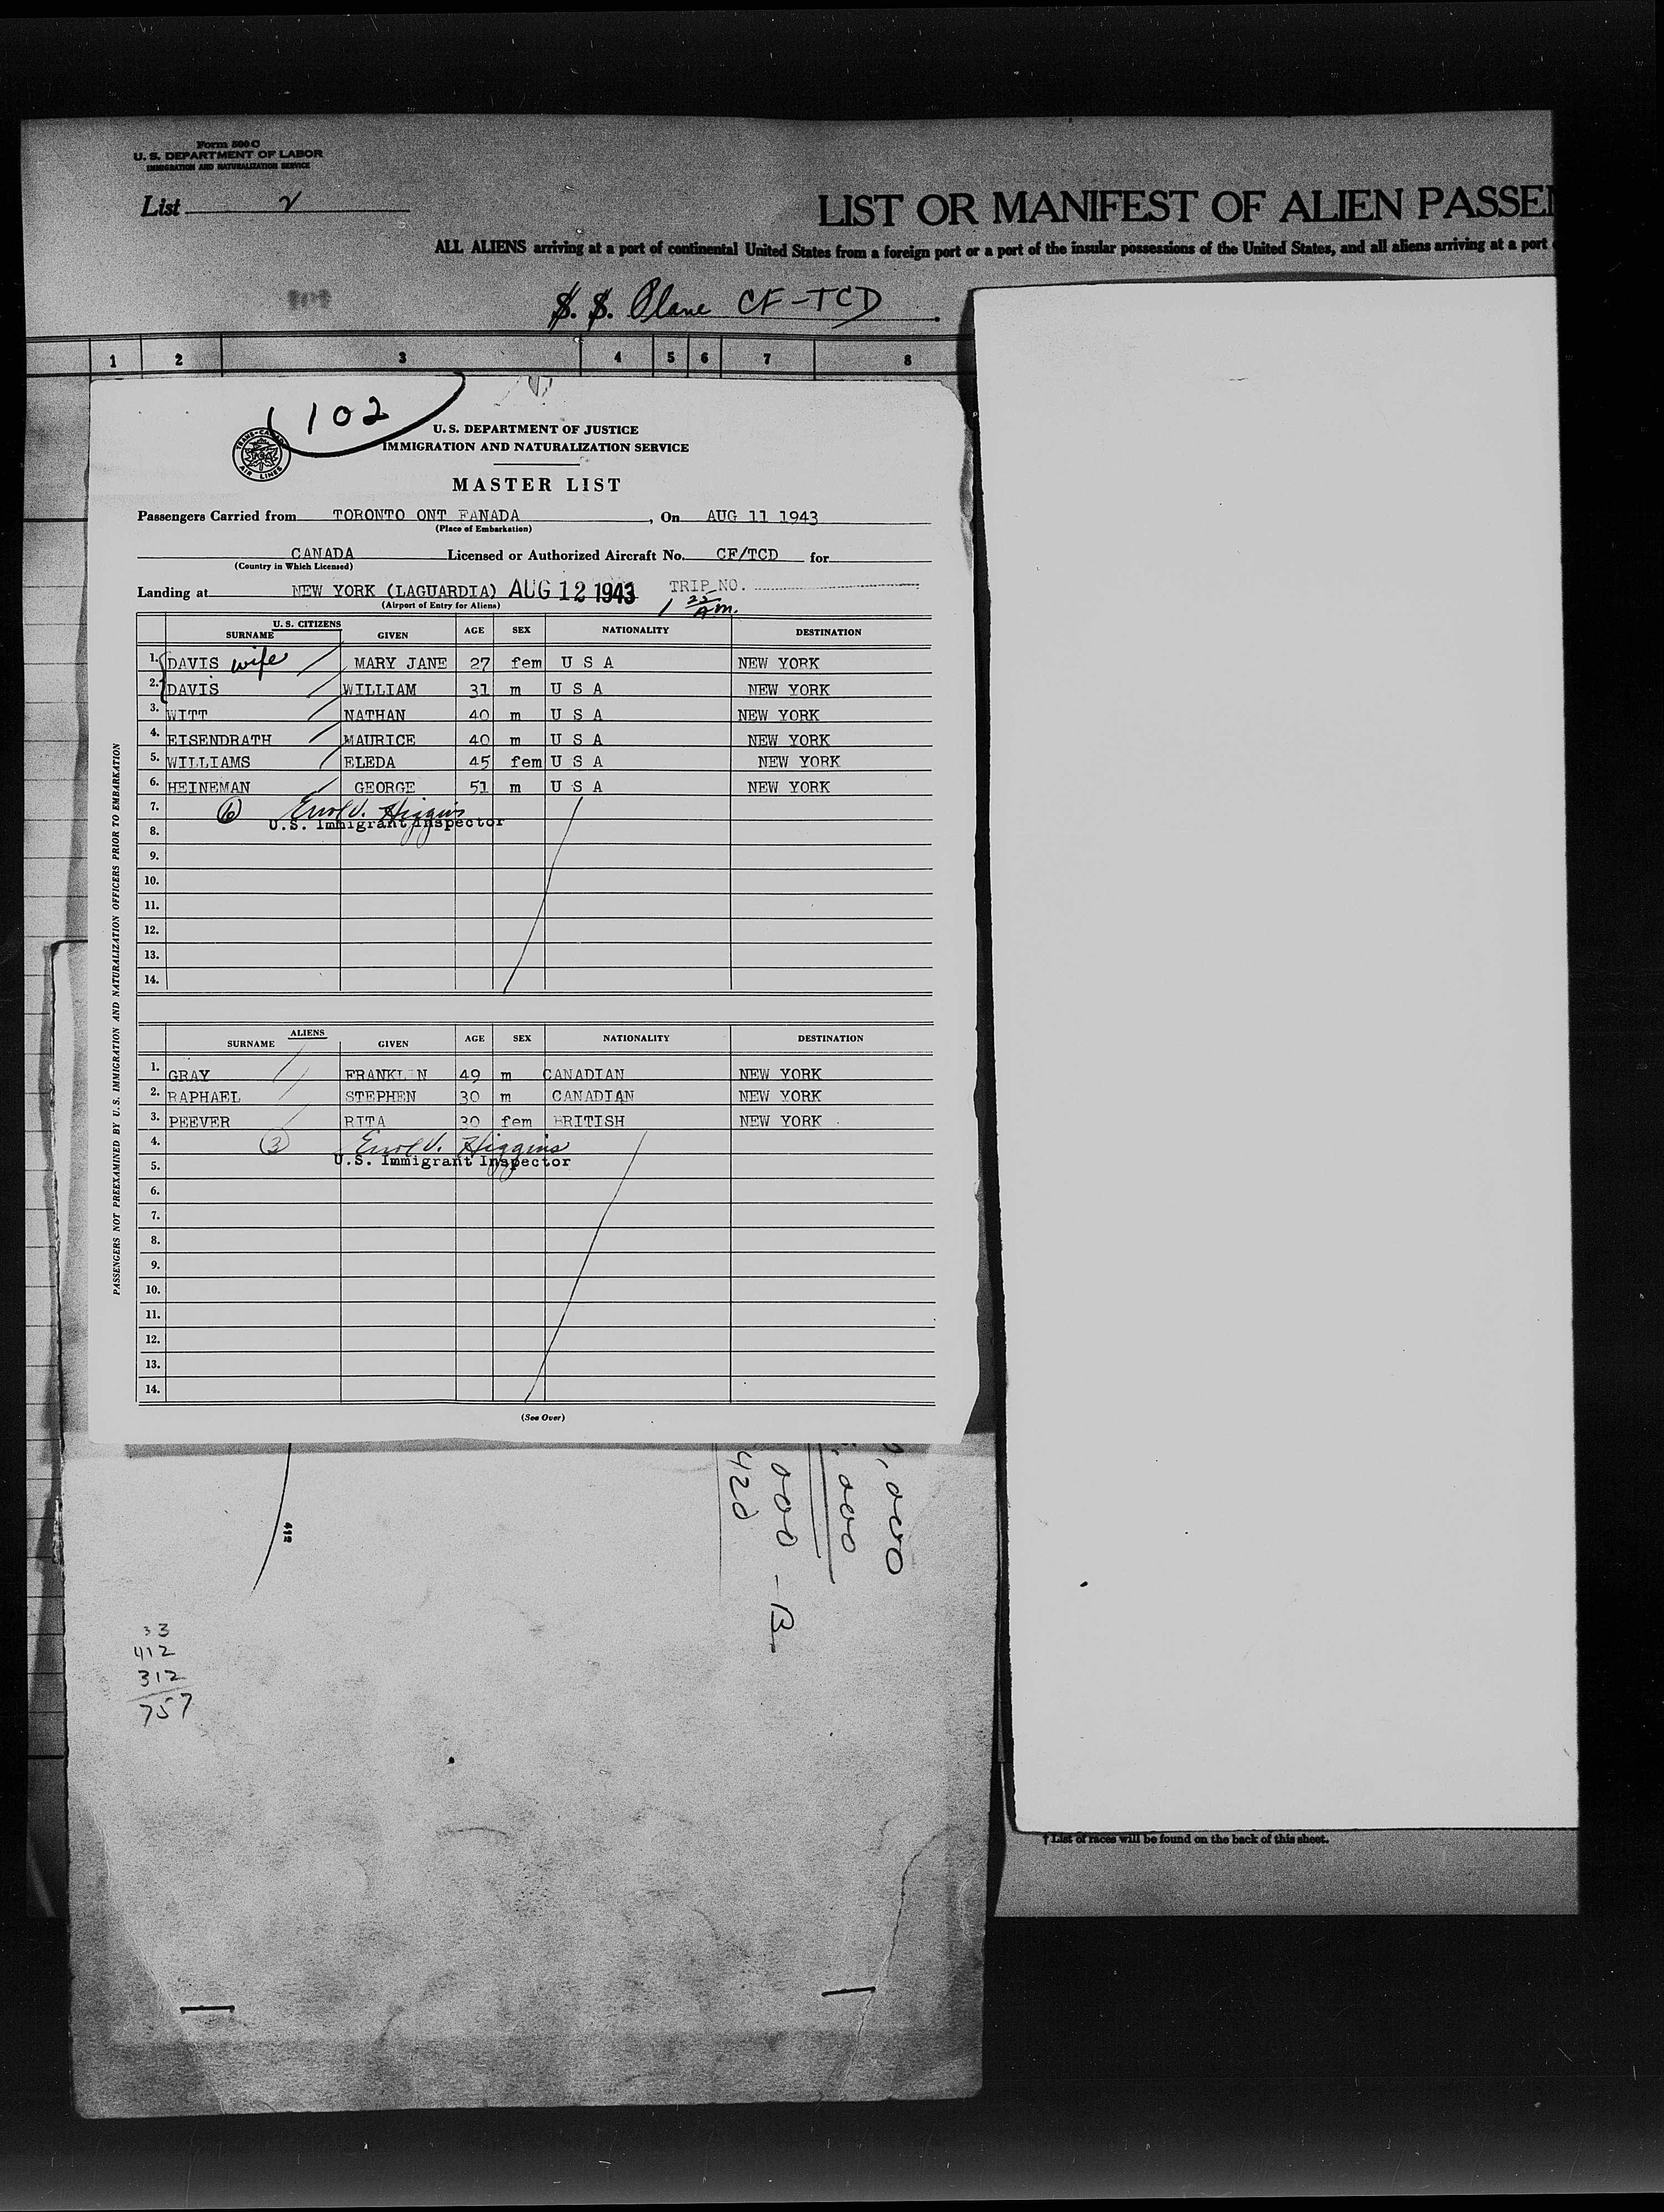 Form 500 C
U. S. DEPARTMENT OF LABOR
IMMIGRATION AND NATURALIZATION SERVICE
List 2
LIST OR MANIFEST OF ALIEN PASSEN
ALL ALIENS arriving at a port of continental United States from a foreign port or a port of the insular possessions of the United States, and all aliens arriving at a port
S. S. Plane CF-TCD
1 2 3 4 5 6 7 8
102
TRANS-CANADA AIR LINES
U.S. DEPARTMENT OF JUSTICE
IMMIGRATION AND NATURALIZATION SERVICE
MASTER LIST
Passengers Carried from TORONTO ONT FANADA, On AUG 11 1943
(Place of Embarkation)
CANADA Licensed or Authorized Aircraft No. CF/TCD for
(Country in Which Licensed)
Landing at NEW YORK (LAGUARDIA) AUG 12 1943 TRIP NO.
(Airport of Entry for Aliens) 1 25 A.M.
U. S. CITIZENS
SURNAME GIVEN AGE SEX NATIONALITY DESTINATION
1. DAVIS wife MARY JANE 27 fem U S A NEW YORK
2. DAVIS WILLIAM 31 m U S A NEW YORK
3. WITT NATHAN 40 m U S A NEW YORK
4. EISENDRATH MAURICE 40 m U S A NEW YORK
5. WILLIAMS ELEDA 45 fem U S A NEW YORK
6. HEINEMAN GEORGE 51 m U S A NEW YORK
7. 6 Errol V. Higgins
8. U.S. Immigrant Inspector
9.
10.
11.
12.
13.
14.
ALIENS
SURNAME GIVEN AGE SEX NATIONALITY DESTINATION
1. GRAY FRANKLIN 49 m CANADIAN NEW YORK
2. RAPHAEL STEPHEN 30 m CANADIAN NEW YORK
3. PEEVER RITA 30 fem BRITISH NEW YORK
4. 3 Errol V. Higgins
5. U.S. Immigrant Inspector
6.
7.
8.
9.
10.
11.
12.
13.
14.
(See Over)
PASSENGERS NOT PREEXAMINED BY U.S. IMMIGRATION AND NATURALIZATION OFFICERS PRIOR TO EMBARKATION
,000
,000
000 - B
420
412
33
412
312
757
† List of races will be found on the back of this sheet.